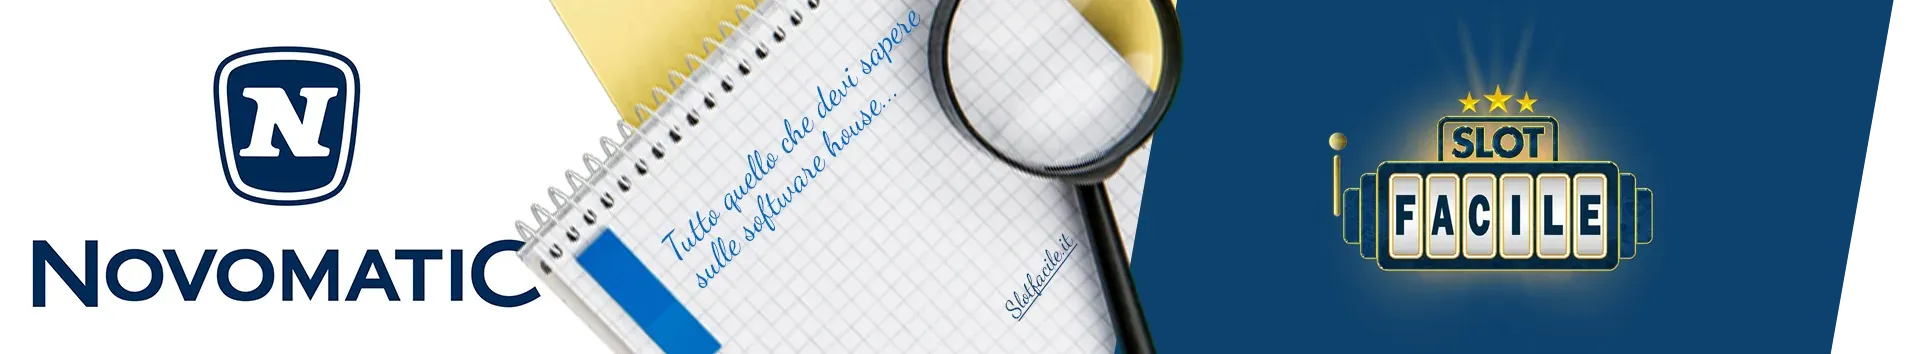 N
NOVOMATIC
Tutto quello che devi sapere
sulle software house...
Slotfacile.it
SLOT
FACILE